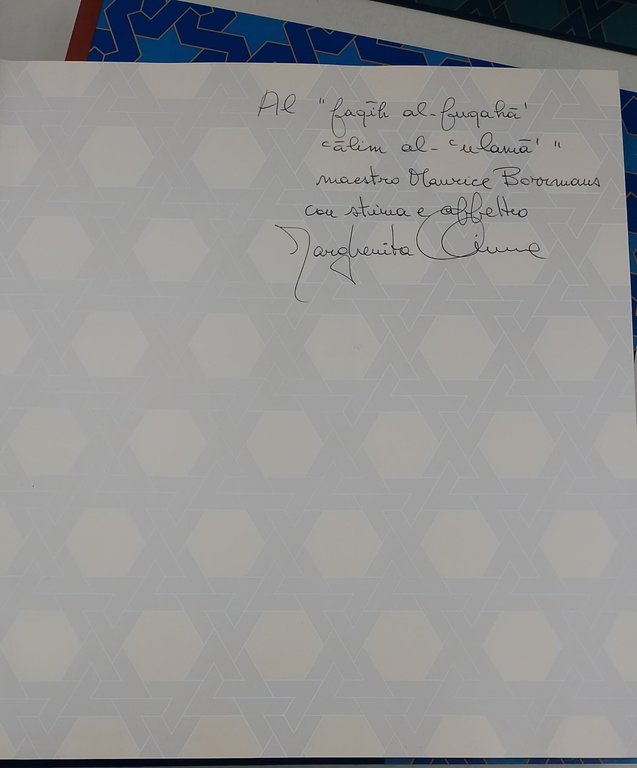 Al "faqīh al-fuqahā'
ʿālim al-ʿulamā'"
maestro Maurice Borrmans
con stima e affetto
Margherita